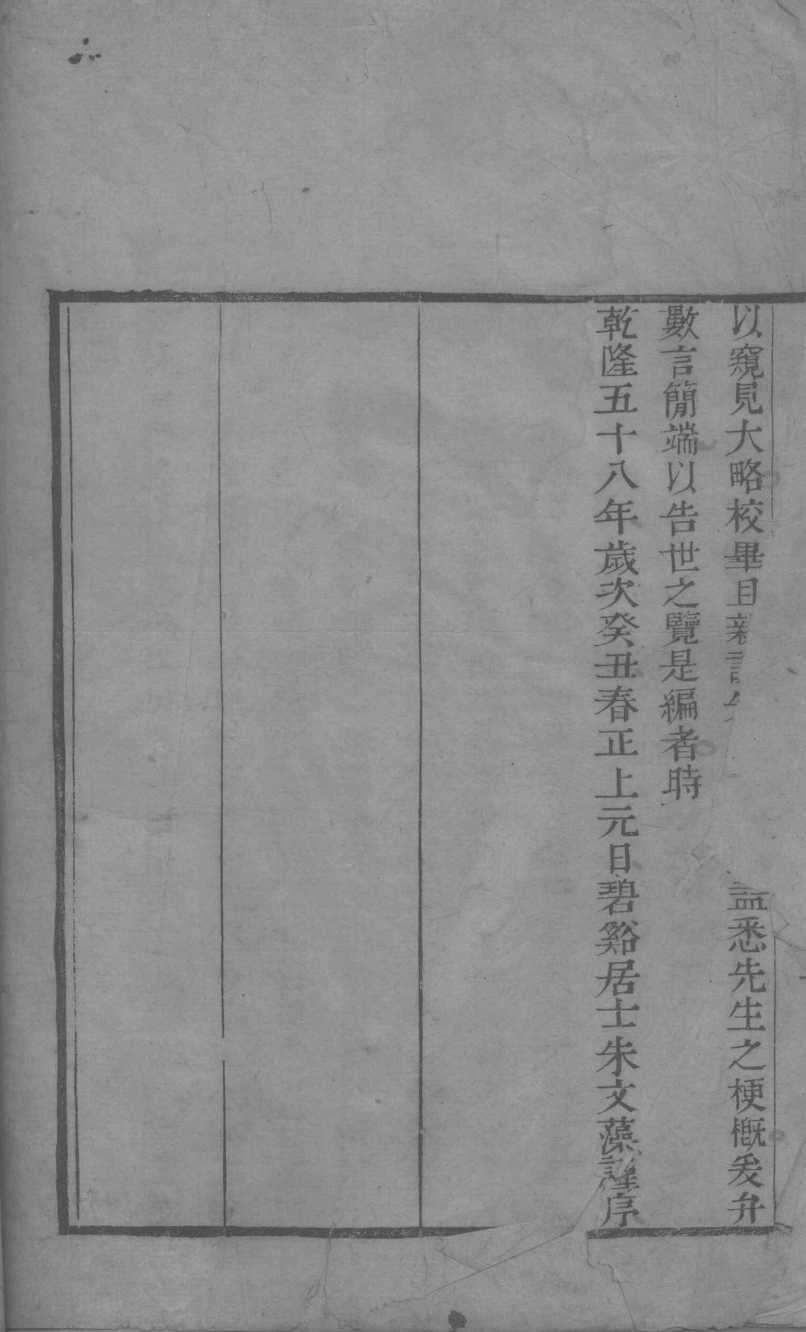 以窺見大略校畢且新益悉先生之梗槪爰弁
數言簡端以告世之覽是編者時
乾隆五十八年歲次癸丑春正上元日碧谿居士朱文藻謹序